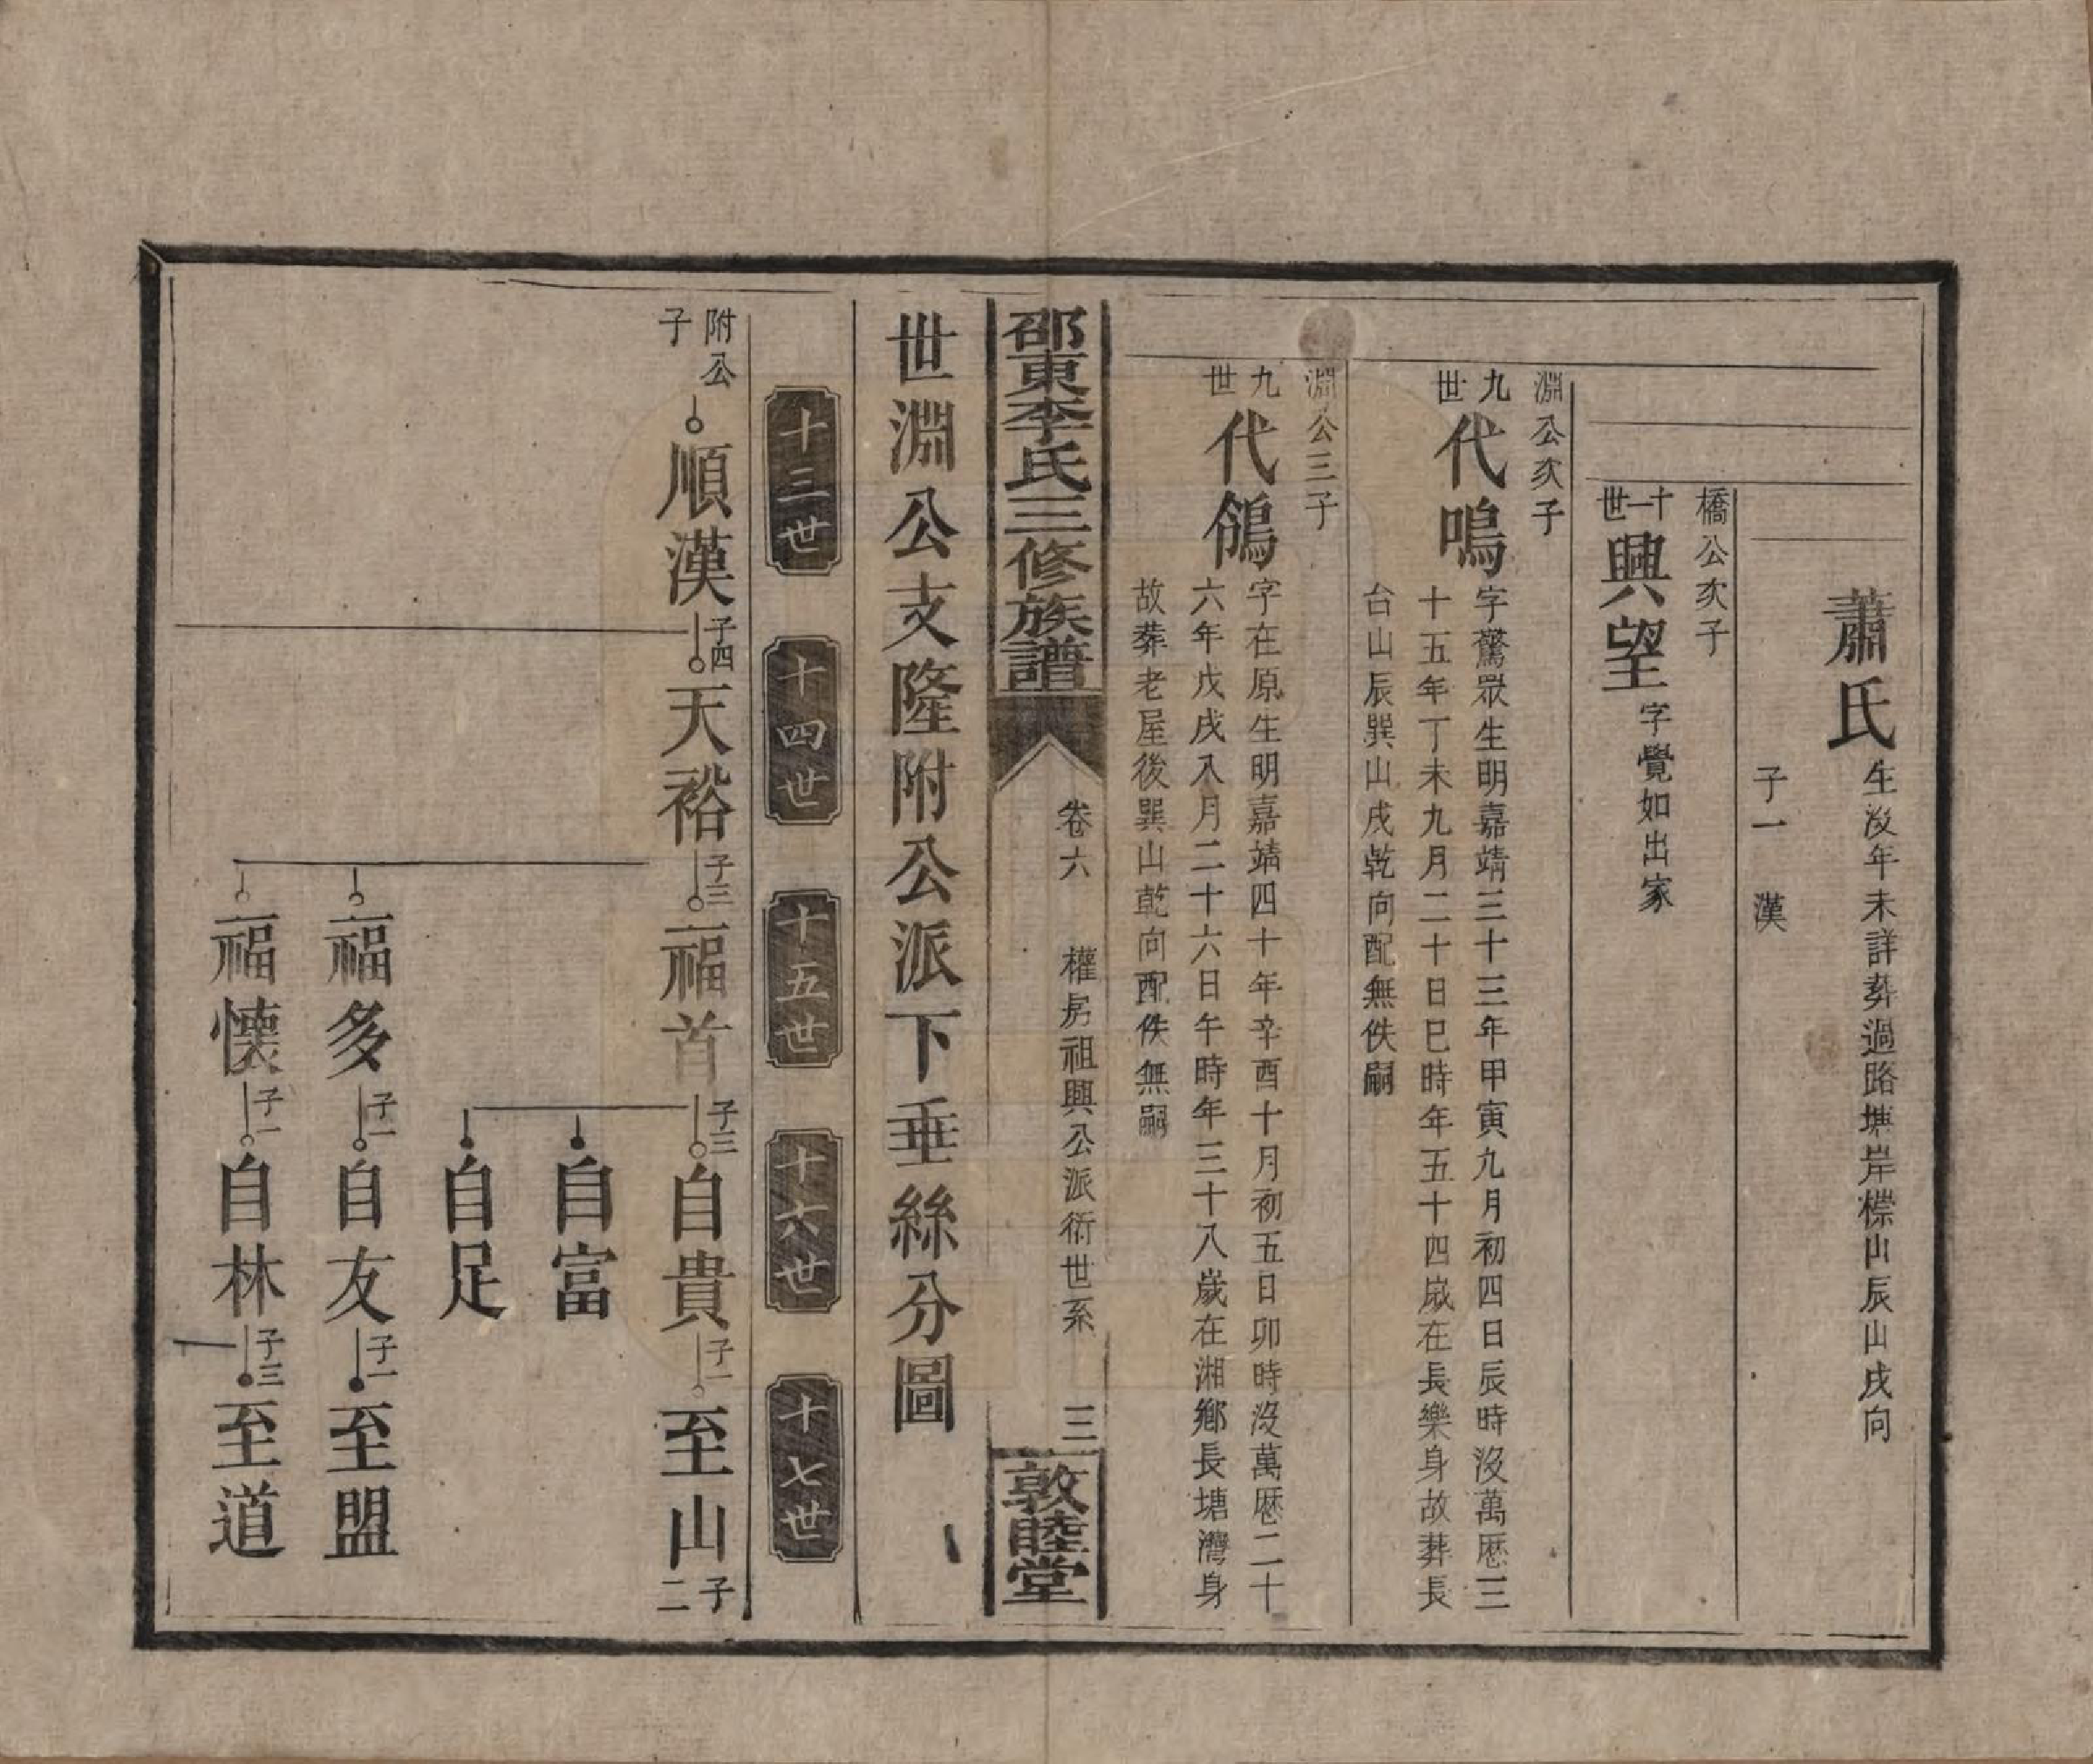 蕭氏
生没年未詳葬過路塘岸標山辰山戌向
子一 漢
橋公次子
十一世
興望
字覺如出家
淵公次子
九世
代鳴
字驚眾生明嘉靖三十三年甲寅九月初四日辰時没萬歷三
十五年丁未九月二十日巳時年五十四歲在長樂身故葬長
台山辰巽山戌乾向配無佚嗣
淵公三子
九世
代鴿
字在原生明嘉靖四十年辛酉十月初五日卯時没萬歷二十
六年戊戌入月二十六日午時年三十八歲在湘鄉長塘灣身
故葬老屋後巽山乾向配佚無嗣
邵東李氏三修族譜
卷六 權房祖興公派衍世系 三
敦睦堂
世淵公支隆附公派下垂絲分圖
十三世 十四世 十五世 十六世 十七世
附公子
順漢 子四 天裕 子三 福首 子三 自貴 子一 至山 子二
自富
自足
福多 子一 自友 子一 至盟
福懷 子一 自林 子三 至道